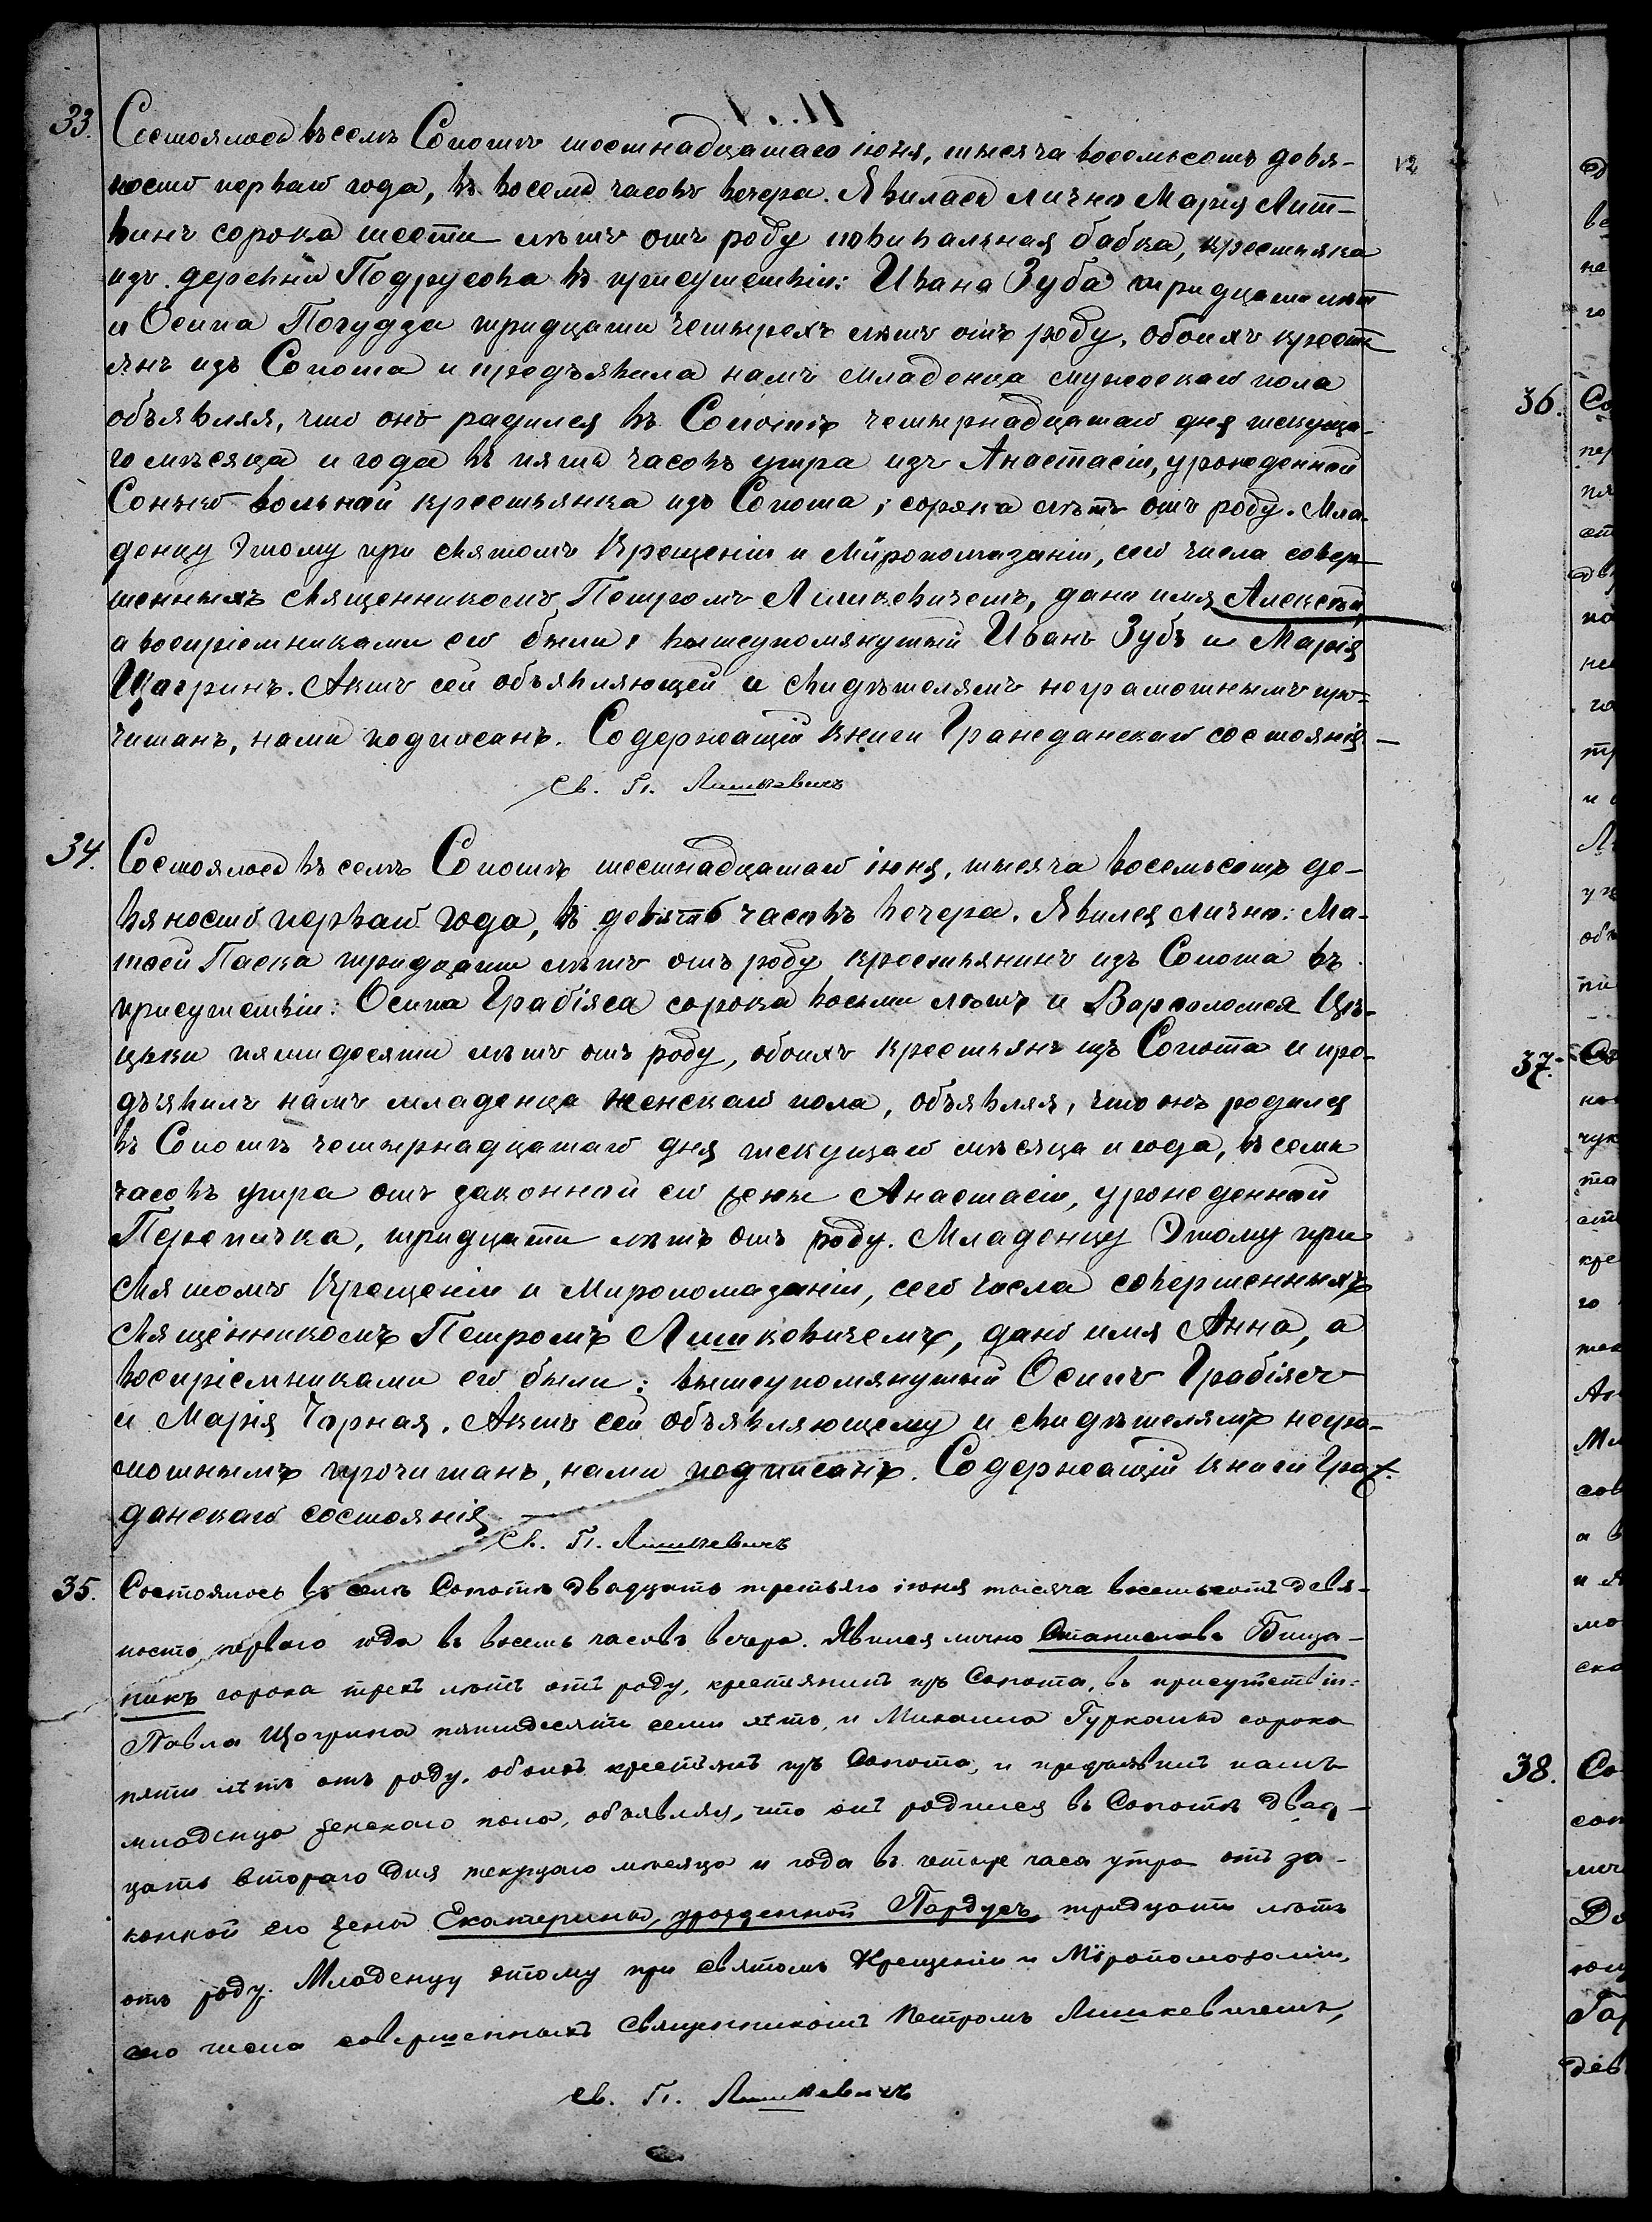 33. Состоялось въ селѣ Сопотѣ шестнадцатаго іюня, тысяча восемьсотъ девя-
12
носто перваго года, въ восемь часовъ вечера. Явилась лично Марія Лит-
винъ сорока шести лѣтъ отъ роду повивальная бабка, крестьянка
изъ деревни Подрусова въ присутствіи: Ивана Зуба тридцати лѣт
и Осипа Погудза тридцати четырехъ лѣтъ отъ роду, обоихъ кресть
янъ изъ Сопота и предъявила намъ младенца мужескаго пола
объявляя, что онъ радился въ Сопотѣ четырнадцатаго дня текуща-
го мѣсяца и года въ пять часовъ утра изъ Анастасіи, урожденной
Сонько вольной крестьянка изъ Сопота, сорока лѣтъ отъ роду. Мла-
денцу Этому при святомъ Крещеніи и Мѵропомазаніи, сего числа совер-
шенныхъ священникомъ Петромъ Лишкевичемъ, дано имя Алексѣй,
а воспріемниками его были: вышеупомянутый Иванъ Зубъ и Марія
Щагринъ. Актъ сей объявляющей и свидѣтелямъ неграмотнымъ про-
читанъ, нами подписанъ. Содержащій книги Гражданскаго состоянія. —
Св. П. Лишкевичъ
34. Состоялось въ селѣ Сопотѣ шестнадцатаго іюня, тысяча восемьсотъ де-
вяносто перваго года, въ девять часовъ вечера. Явился лично: Ма-
тѳей Паска тридцати лѣтъ отъ роду крестьянинъ изъ Сопота въ
присутствіи: Осипа Грабіяса сорока восьми лѣтъ и Варѳоломея Цѣ-
цьки пятидесяти лѣтъ отъ роду, обоихъ крестьянъ изъ Сопота и пре-
дъявилъ намъ младенца женскаго пола, объявляя, что онъ родился
въ Сопотѣ четырнадцатаго дня текущаго мѣсяца и года, въ семь
часовъ утра отъ законной его жены Анастасіи, урожденной
Перепичка, тридцати лѣтъ отъ роду. Младенцу Этому при
святомъ Крещеніи и Миропомазаніи, сего числа совершенныхъ
священникомъ Петромъ Лишкевичемъ, дано имя Анна, а
воспріемниками его были: вышеупомянутый Осипъ Грабіясъ
и Марія Чорная. Актъ сей объявляющему и свидѣтелямъ негра-
мотнымъ прочитанъ, нами подписанъ. Содержащій книги Граж-
данскаго состоянія —
Св. П. Лишкевичъ
35. Состоялось въ селѣ Сопотѣ двадцать третьяго іюня тысяча восемьсотъ девя-
носто перваго года въ восемь часовъ вечера. Явился лично Станиславъ Бища-
никъ сорока трехъ лѣтъ отъ роду, крестьянинъ изъ Сопота, въ присутствіи:
Павла Щагрина пятидесяти семи лѣтъ, и Михаила Гуркало сорока
пяти лѣтъ отъ роду, обоихъ крестьянъ изъ Сопота, и предъявилъ намъ
младенца женскаго пола, объявляя, что онъ родился въ Сопотѣ двад-
цать втораго дня текущаго мѣсяца и года въ четыре часа утра отъ за-
конной его жены Екатерины, урожденной Пардусъ, тридцати лѣтъ
отъ роду. Младенцу этому при святомъ Крещеніи и Мѵропомазаніи,
сего числа совершенныхъ Священникомъ Петромъ Лишкевичемъ,
Св. П. Лишкевичъ
36. Со
37.
38. Со